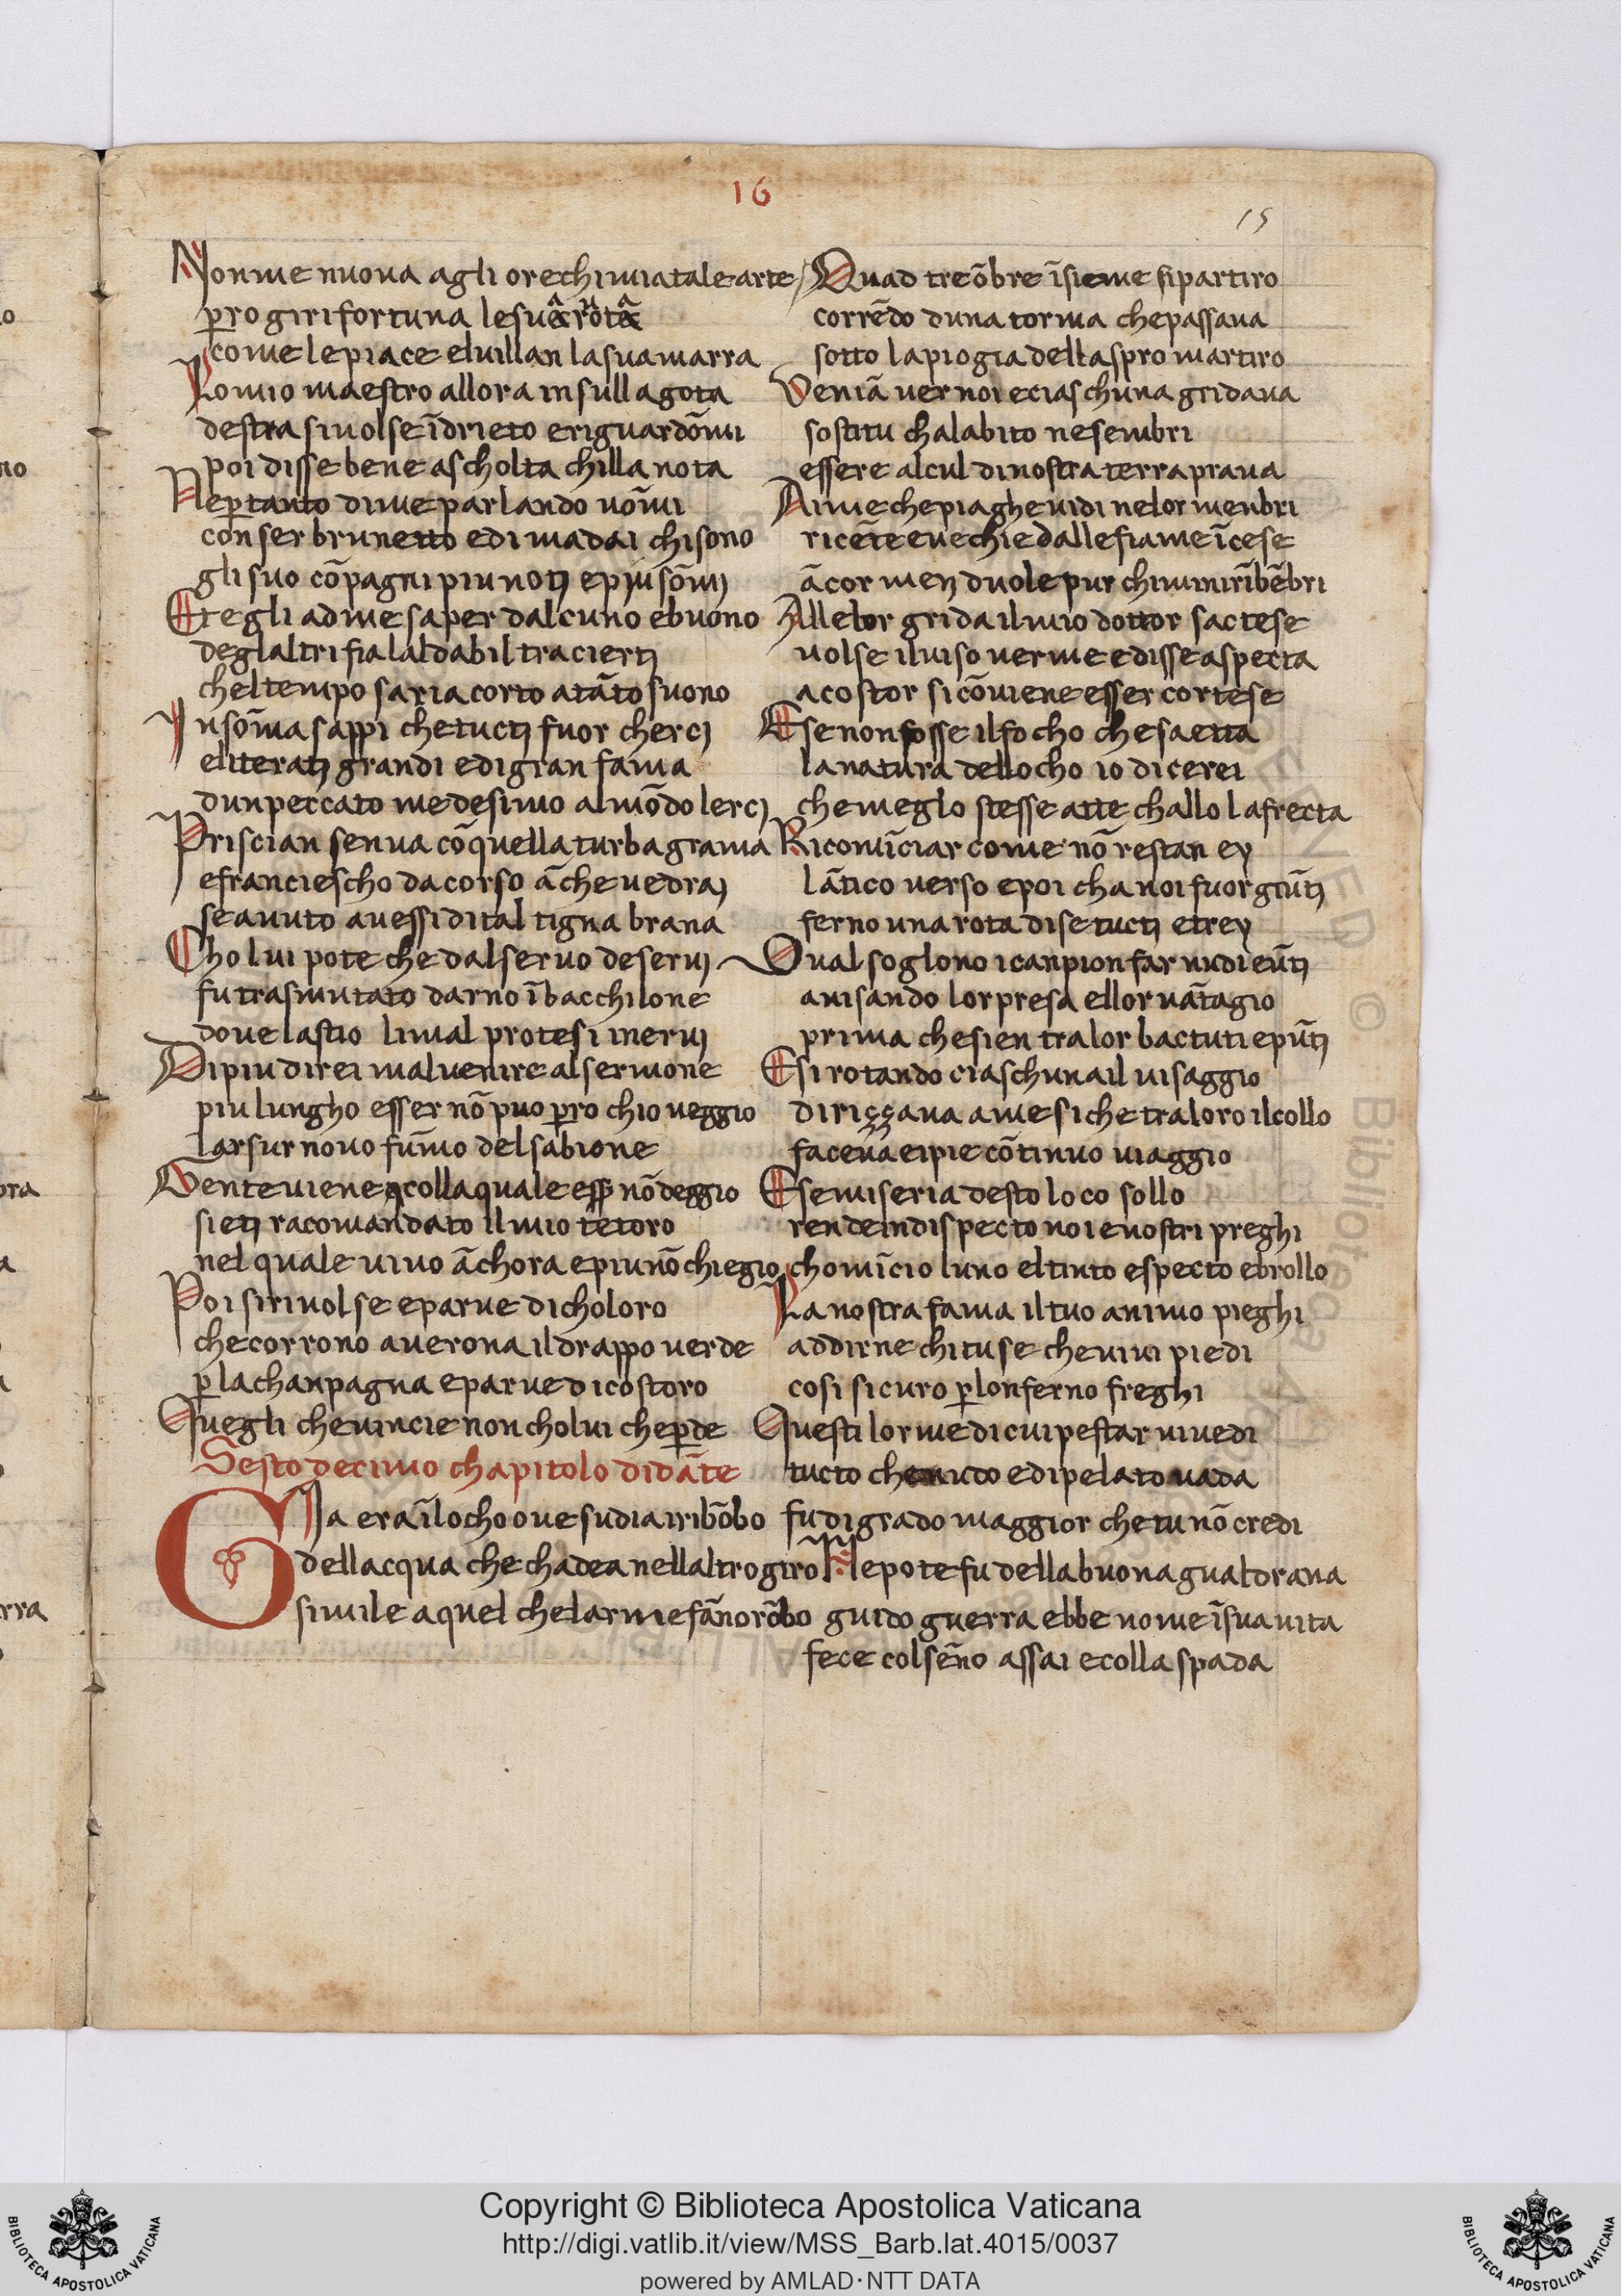 16
15
Non me nuova agli orechi mia tale arte
ꝑro giri fortuna le sua rota
come le piace el uillan la sua marra
Lo mio maestro allora in sulla gota
destra si uolse īdrieto e riguardōmi
poi disse bene ascholta chi lla nota
Ne ꝑtanto di me parlando uōmi
con ser brunetto e dimadai chi sono
gli suo cōpagni piu notj e piu sōmj
Et egli ad me saper dalcuno e buono
deglaltri fia laldabil traciertj
chel tempo saria corto a tāto suono
In sōma sappi che tuctj fuor chercj
e literatj grandi e di gran fama
dun peccato medesimo al mōdo lercj
Priscian sen ua cō quella turba grama
e franciescho dacorso āche uedraj
se auuto auessi di tal tigna brana
Cholui pote che dal seruo de seruj
fu trasmutato darno ī bacchilone
doue lastio li mal protesiineruj
Di piu direi mal uenire al sermone
piu lungho esser nō puo ꝑro chio ueggio
lar sur nouo fūmo del sabione
Gente uiene colla quale esser nō deggio
sietj racomandato il mio tētoro
nel quale uiuo āchora e piu nō chiegio
Poi si riuolse e parue di choloro
che corrono a uerona il drappo uerde
ꝑ la chanpagna e parue di costoro
Quegli che uincie non cholui che ꝑde
Sesto decimo chapitolo di dāte
Gia era ī locho oue sudia i ribōbo
dellacqua che chadea nellaltro giro
simile a quel che larnie fāno rōbo
Quād tre ōbre īsieme si partiro
corrēdo duna torma che passaua
sotto la piogia dellaspro martiro
Veniā uer noi e ciaschuna gridaua
sostitu challabito ne sembri
essere alcul di nostra terra praua
Aime che piaghe uidi ne lor menbri
ricēte e uechie dalle fiame īcese
ācor men duole pur chi mi nirībēbri
Alle lor grida il mio dottor sactese
uolse il uiso uer me e disse aspecta
a costor si cōuiene esser cortese
E se non fosse il focho che saetta
la natura dellocho io dicerei
che meglo stesse atte challo la frecta
Ricomīciar come nō restan ey
lātico uerso e poi cha noi fuor giūtj
ferno una rota di se tuctj e trey
Qual soglono i canpion far nudi e ūtj
auisando lor presa ellor uātagio
prima che sien tra lor bactuti e pūtj
E si rotando ciaschuna il uisaggio
diriççaua a me si che tra loro il collo
faceua ei pie cōtinuo uiaggio
E se miseria desto loco sollo
rende in dispecto noi e nostri preghi
chomīcio luno el tinto especto e brollo
La nostra fama il tuo animo pieghi
addirne chi tu se che uiui piedi
cosi sicuro ꝑ lonferno freghi
Questi lorme di cui pestar mi uedi
tucto che nudo e dipelato uada
fu di grado maggior che tu nō credi
Nepote fu della buona gualdrana
guido guerra ebbe nome ī sua uita
fece col sēno assai e colla spada
Copyright © Biblioteca Apostolica Vaticana
http://digi.vatlib.it/view/MSS_Barb.lat.4015/0037
powered by AMLAD·NTT DATA
BIBLIOTECA APOSTOLICA VATICANA
BIBLIOTECA APOSTOLICA VATICANA